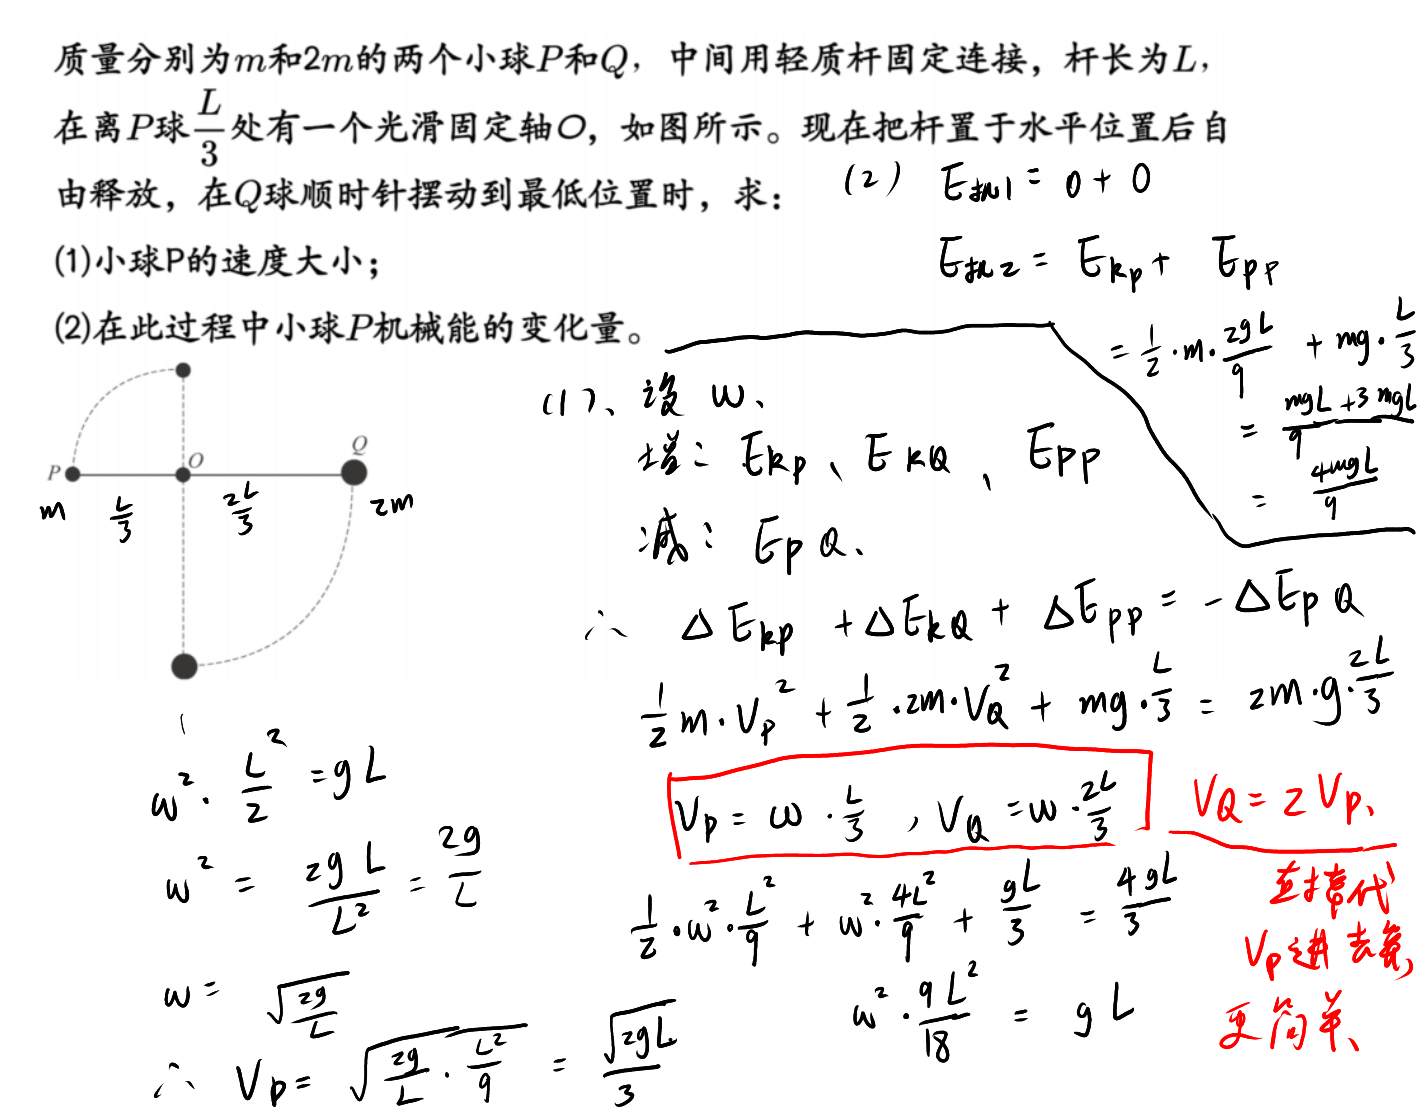 质量分别为m和2m的两个小球P和Q，中间用轻质杆固定连接，杆长为L，
在离P球L/3处有一个光滑固定轴O，如图所示。现在把杆置于水平位置后自
由释放，在Q球顺时针摆动到最低位置时，求：
(1)小球P的速度大小；
(2)在此过程中小球P机械能的变化量。
(2) E机1 = 0 + 0
E机2 = Ekp + Epp
= 1/2·m·2gL/9 + mg·L/3
= mgL+3mgL/9
= 4mgL/9
P O Q
m L/3 2L/3 2m
(1)、设 w、
增：Ekp、EkQ、Epp
减：EpQ、
∴ ΔEkp + ΔEkQ + ΔEpp = -ΔEpQ
1/2 m·Vp² + 1/2·2m·VQ² + mg·L/3 = 2m·g·2L/3
Vp = w·L/3 , VQ = w·2L/3
VQ = 2Vp、
直接带代
Vp进去算，
更简单、
1/2·w²·L²/9 + w²·4L²/9 + gL/3 = 4gL/3
w²·9L²/18 = gL
w²·L²/2 = gL
w² = 2gL/L² = 2g/L
w = √(2g/L)
∴ Vp = √(2g/L·L²/9) = √(2gL)/3